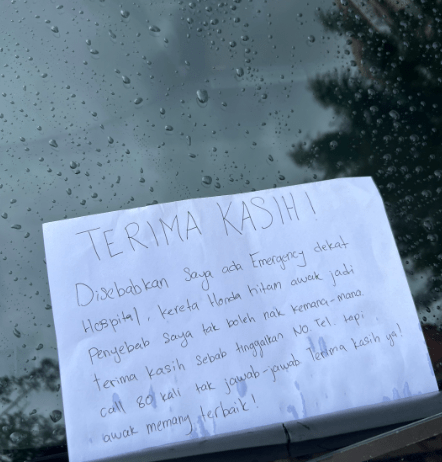 TERIMA KASIH!
Disebabkan saya ada Emergency dekat
Hospital, kereta Honda hitam awak jadi
Penyebab saya tak boleh nak kemana-mana.
terima kasih sebab tinggalkan NO. Tel. tapi
call 80 kali tak jawab-jawab. Terima kasih ya!
awak memang terbaik!